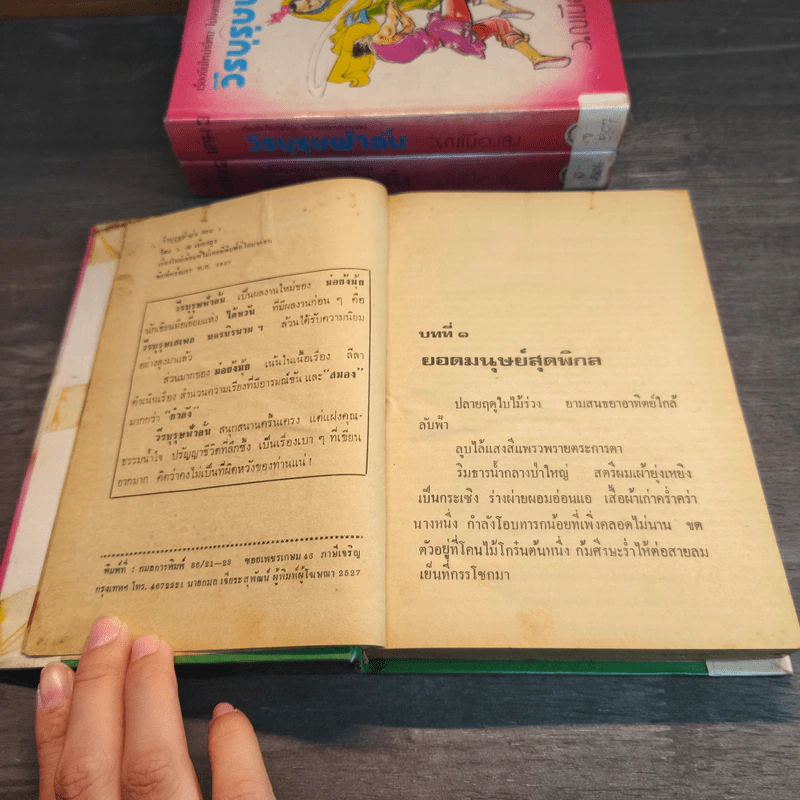 วีรบุรุษฟ้าลั่น
ว.ณเมืองลุง
วีรบุรุษฟ้าลั่น เล่ม ๑
โดย ว. ณ เมืองลุง
พิมพ์ครั้งแรก พ.ศ. 2527
วีรบุรุษฟ้าลั่น เป็นผลงานใหม่ของ ม่อยังมุ้ย
นักเขียนมือเยี่ยมแห่ง ไต้หวัน ที่มีผลงานก่อน ๆ คือ
วีรบุรุษเสเพล นครนิรนาม ฯ ล้วนได้รับความนิยม
อย่างสูงมาแล้ว
ส่วนมากของ ม่อยังมุ้ย เน้นในเนื้อเรื่อง ลีลา
ดำเนินเรื่อง สำนวนความเรียงที่มีอารมณ์ขัน และ "สมอง"
มากกว่า "กำลัง"
วีรบุรุษฟ้าลั่น สนุกสนานครื้นเครง แต่แฝงคุณ-
ธรรมน้ำใจ ปรัญญาชีวิตที่ลึกซึ้ง เป็นเรื่องเบา ๆ ที่เขียน
ยากมาก คิดว่าคงไม่เป็นที่ผิดหวังของท่านแน่!
พิมพ์ที่ : กมลการพิมพ์ 86/21-23 ซอยเพชรเกษม 46 ภาษีเจริญ
กรุงเทพฯ โทร. 4672221 นายกมล เจียระสุพัฒน์ ผู้พิมพ์ผู้โฆษณา 2527
บทที่ ๑
ยอดมนุษย์สุดพิกล
ปลายฤดูใบไม้ร่วง ยามสนธยาอาทิตย์ใกล้
ลับฟ้า
ลูบไล้แสงสีแพรวพรายตระการตา
ริมธารน้ำกลางป่าใหญ่ สตรีผมเผ้ายุ่งเหยิง
เป็นกระเซิง ร่างผ่ายผอมอ่อนแอ เสื้อผ้าเก่าคร่ำคร่า
นางหนึ่ง กำลังโอบทารกน้อยที่เพิ่งคลอดไม่นาน ขด
ตัวอยู่ที่โคนไม้โกร๋นต้นหนึ่ง ก้มศีรษะร่ำไห้ต่อสายลม
เย็นที่กรรโชกมา